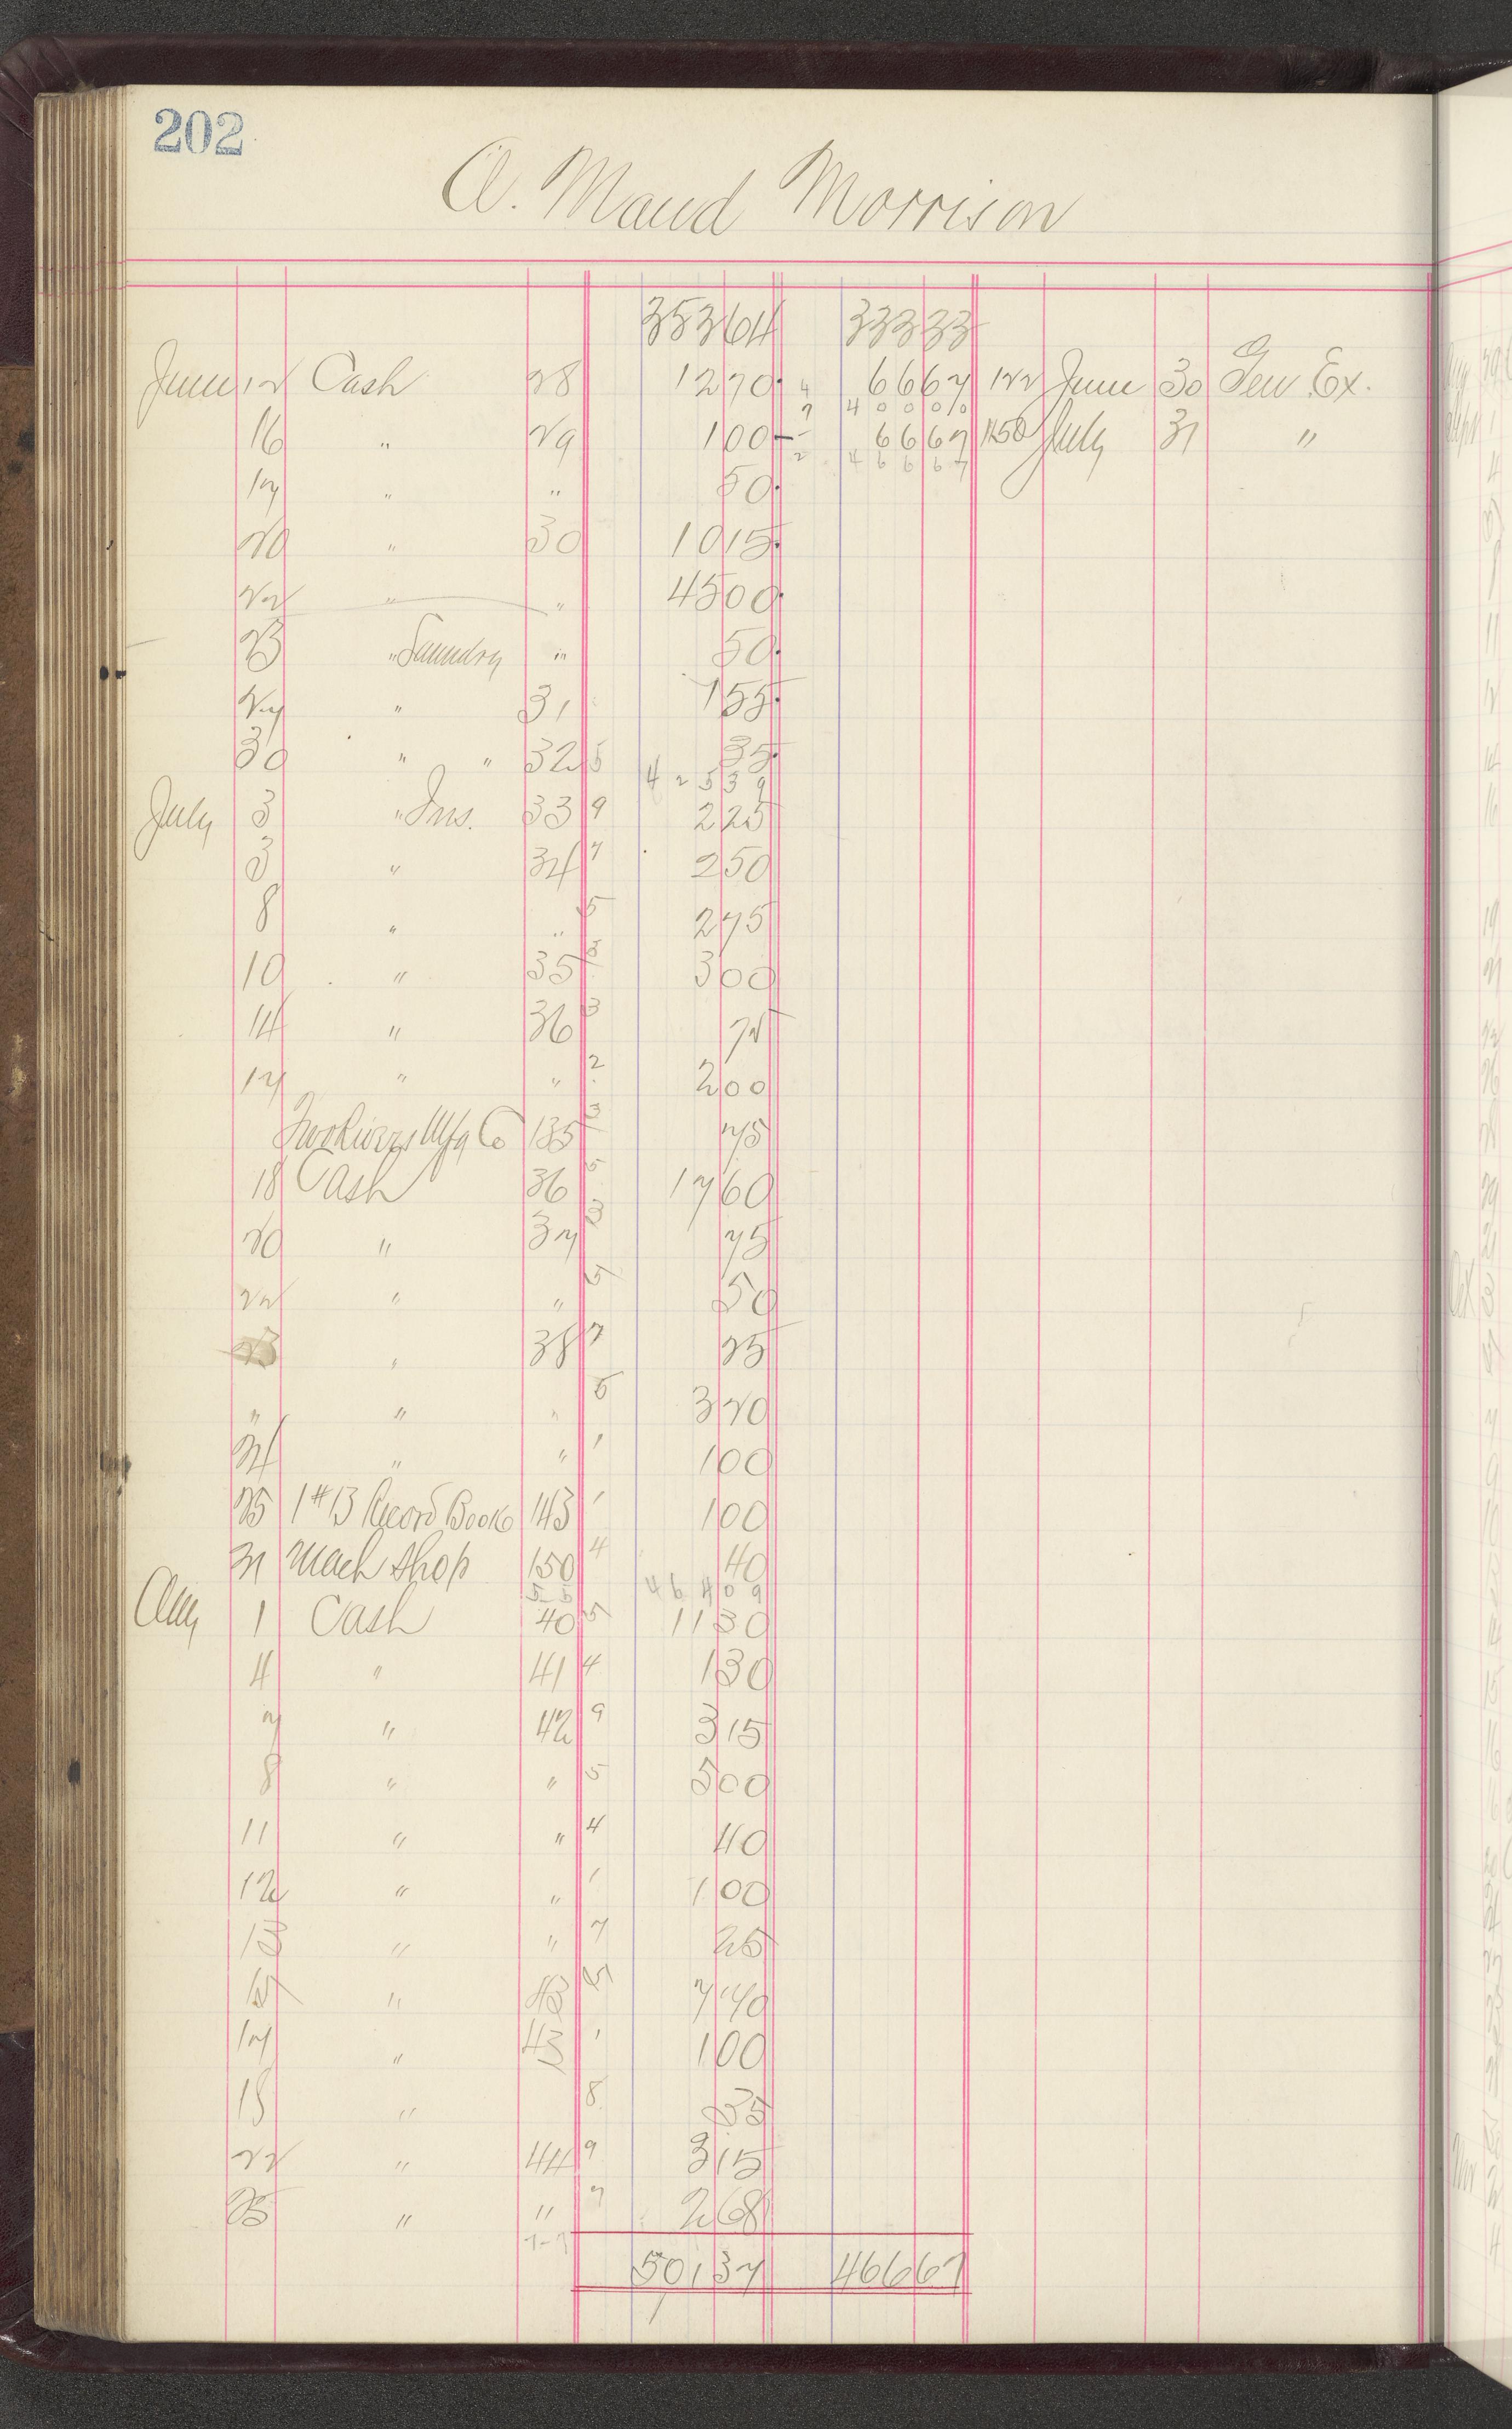 202
A. Maud Morrison
353 64 333 33
June 12 Cash 28 12 70 4 66 67 122 June 30 Gen Ex.
7 4 0 0 0 0
16 " 29 1 00 2 66 67 150 July 31 "
4 6 6 6 7
17 " " 50
20 " 30 10 15
22 " " 45 00
23 " Laundry " 50
27 " 31 1 55
30 " " 32 5 35
4 2 5 3 9
July 3 " Ins. 33 9 2 25
3 " 34 7 2 50
8 " " 5 2 75
10 " 35 3 3 00
14 " 36 3 75
17 " " 2 2 00
Two Rivers Mfg Co 135 3 75
18 Cash 36 5 17 60
20 " 37 3 75
22 " " 5 50
23 " 38 7 25
" " " 5 3 20
24 " " 1 1 00
25 1 # 13 Record Book 143 1 1 00
31 Mach Shop 150 4 40
5-5 4 6 4 0 9
Aug 1 Cash 40 5 11 30
4 " 41 4 1 30
7 " 42 9 3 15
8 " " 5 5 00
11 " " 4 40
12 " " 1 1 00
13 " " 7 25
15 " 43 5 7 70
17 " 43 1 1 00
18 " 8 35
22 " 44 9 3 15
25 " " 7 2 68
7-7
501 37 466 67